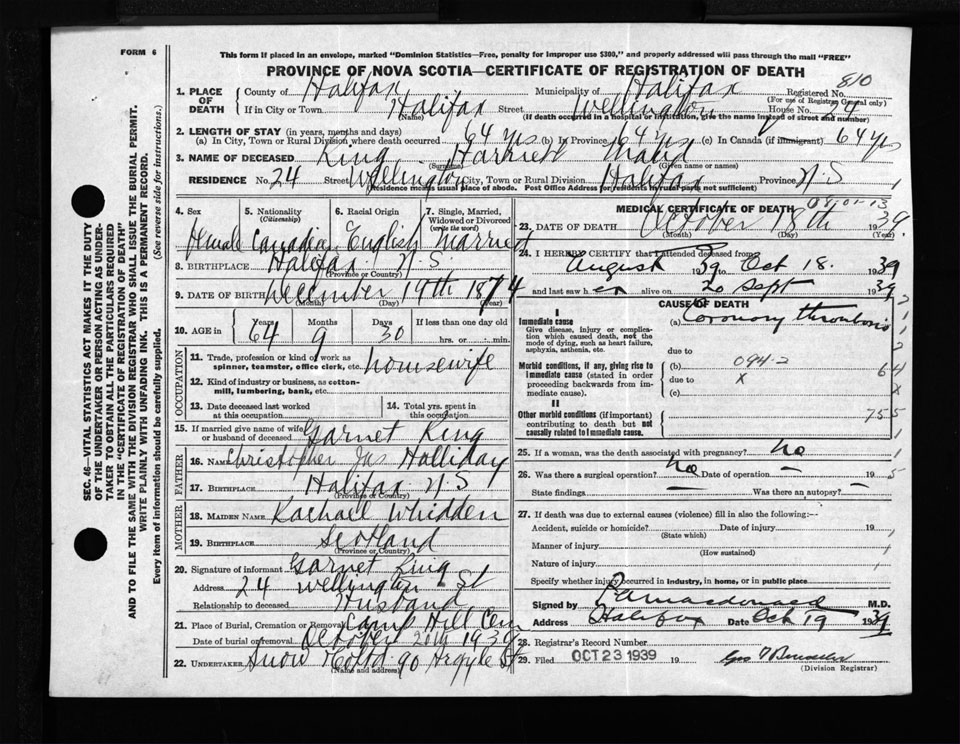 FORM 6
This form if placed in an envelope, marked "Dominion Statistics—Free, penalty for improper use $300," and properly addressed will pass through the mail "FREE"
PROVINCE OF NOVA SCOTIA—CERTIFICATE OF REGISTRATION OF DEATH
810
1. PLACE OF DEATH
County of Halifax Municipality of Halifax Registered No.
(For use of Registrar General only)
If in City or Town Halifax Street Wellington House No. 24
(Name) (If death occurred in a hospital or institution, give the name instead of street and number)
2. LENGTH OF STAY (in years, months and days)
(a) In City, Town or Rural Division where death occurred 64 yrs (b) In Province 64 yrs (c) In Canada (if immigrant) 64 yrs
3. NAME OF DECEASED King Harriett Maud
(Surname) (Given name or names)
RESIDENCE No. 24 Street Wellington City, Town or Rural Division Halifax Province N.S
(Residence means usual place of abode. Post Office Address for residents in rural parts not sufficient)
4. Sex
Female
5. Nationality
(Citizenship)
Canadian
6. Racial Origin
English
7. Single, Married, Widowed or Divorced
(write the word)
married
8. BIRTHPLACE Halifax N.S.
(Province or Country)
9. DATE OF BIRTH December 19th 1874
(Month) (Day) (Year)
10. AGE in
Years Months Days If less than one day old
64 9 30 hrs. or min.
OCCUPATION
11. Trade, profession or kind of work as spinner, teamster, office clerk, etc. housewife
12. Kind of industry or business, as cotton-mill, lumbering, bank, etc.
13. Date deceased last worked at this occupation
14. Total yrs. spent in this occupation
15. If married give name of wife or husband of deceased Garnet King
FATHER
16. NAME Christopher Jas Halliday
17. BIRTHPLACE Halifax N.S
(Province or Country)
MOTHER
18. MAIDEN NAME Rachael Whidden
19. BIRTHPLACE Scotland
(Province or Country)
20. Signature of informant Garnet King
Address 24 Wellington St
Relationship to deceased Husband
21. Place of Burial, Cremation or Removal Camp Hill Cem
Date of burial or removal October 20th 1939
22. UNDERTAKER Snow & Co Ltd 90 Argyle St
(Name and address)
MEDICAL CERTIFICATE OF DEATH
23. DATE OF DEATH October 18th 1939
(Month) (Day) (Year)
24. I HEREBY CERTIFY that I attended deceased from
August 1939 to Oct 18. 1939
and last saw her alive on 20 Sept 1939
CAUSE OF DEATH
I
Immediate cause
Give disease, injury or complication which caused death, not the mode of dying, such as heart failure, asphyxia, asthenia, etc.
(a) Coronary thrombosis
due to
Morbid conditions, if any, giving rise to immediate cause (stated in order proceeding backwards from immediate cause).
(b) 094-2
due to X
(c)
64
X
II
Other morbid conditions (if important) contributing to death but not causally related to immediate cause.
755
25. If a woman, was the death associated with pregnancy? No
26. Was there a surgical operation? No Date of operation — 19
State findings — Was there an autopsy? —
27. If death was due to external causes (violence) fill in also the following:—
Accident, suicide or homicide? Date of injury 19
(State which)
Manner of injury
(How sustained)
Nature of injury
Specify whether injury occurred in industry, in home, or in public place
Signed by Macdonald M.D.
Address Halifax Date Oct 19 1939
28. Registrar's Record Number
29. Filed OCT 23 1939 19
(Division Registrar)
SEC. 46—VITAL STATISTICS ACT MAKES IT THE DUTY
OF THE UNDERTAKER OR PERSON ACTING AS UNDER-
TAKER TO OBTAIN ALL THE PARTICULARS REQUIRED
IN THE "CERTIFICATE OF REGISTRATION OF DEATH"
AND TO FILE THE SAME WITH THE DIVISION REGISTRAR WHO SHALL ISSUE THE BURIAL PERMIT.
WRITE PLAINLY WITH UNFADING INK. THIS IS A PERMANENT RECORD.
Every item of information should be carefully supplied. (See reverse side for instructions.)